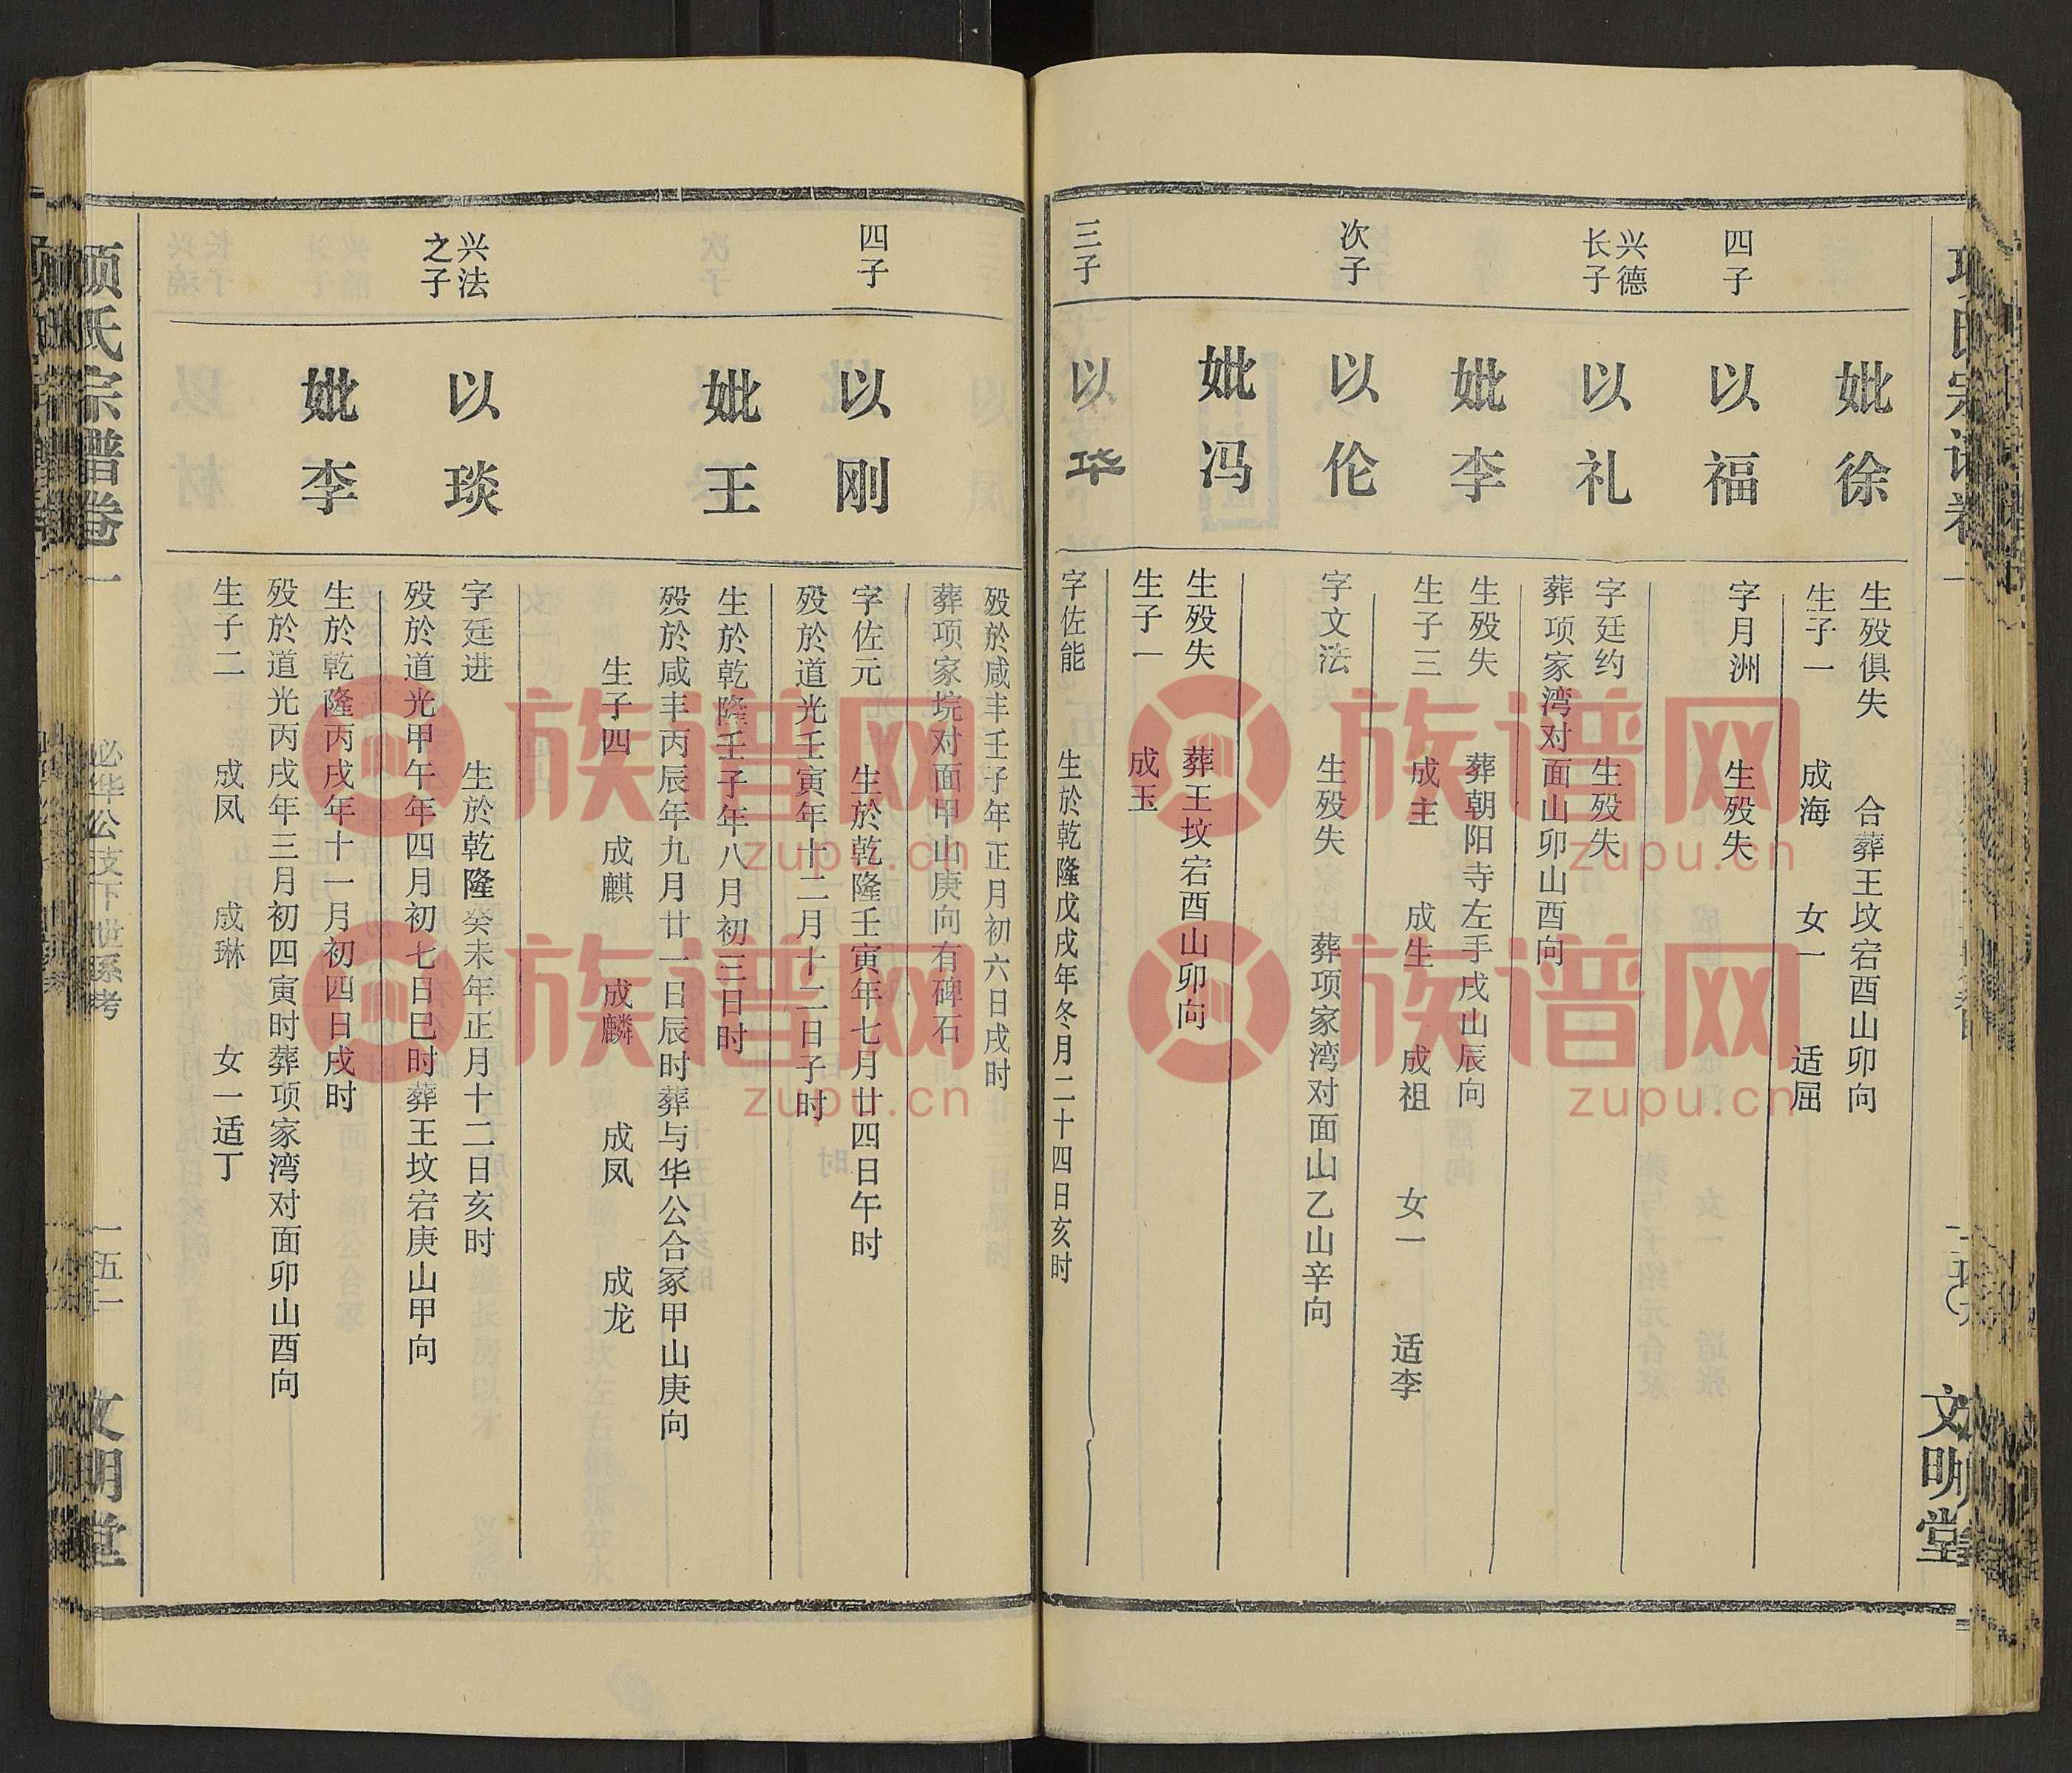 项氏宗谱卷一
一五〇
文明堂
妣徐
生殁俱失 合葬王坟宕酉山卯向
生子一 成海 女一 适屈
四子
以福
字月洲 生殁失
兴德
长子
以礼
字廷约 生殁失
葬项家湾对面山卯山酉向
妣李
生殁失 葬朝阳寺左手戌山辰向
生子三 成主 成生 成祖 女一 适李
次子
以伦
字文法 生殁失 葬项家湾对面山乙山辛向
妣冯
生殁失 葬王坟宕酉山卯向
生子一 成玉
三子
以华
字佐能 生於乾隆戊戌年冬月二十四日亥时
殁於咸丰壬子年正月初六日戌时
葬项家垸对面甲山庚向有碑石
四子
以刚
字佐元 生於乾隆壬寅年七月廿四日午时
殁於道光壬寅年十二月十二日子时
妣王
生於乾隆壬子年八月初三日时
殁於咸丰丙辰年九月廿一日辰时葬与华公合冢甲山庚向
生子四 成麒 成麟 成凤 成龙
兴法
之子
以琰
字廷进 生於乾隆癸未年正月十二日亥时
殁於道光甲午年四月初七日巳时葬王坟宕庚山甲向
妣李
生於乾隆丙戌年十一月初四日戌时
殁於道光丙戌年三月初四寅时葬项家湾对面卯山酉向
生子二 成凤 成琳 女一适丁
项氏宗谱卷一
必华公支下世系考
一五一
文明堂
族谱网
zupu.cn
族谱网
zupu.cn
族谱网
zupu.cn
族谱网
zupu.cn